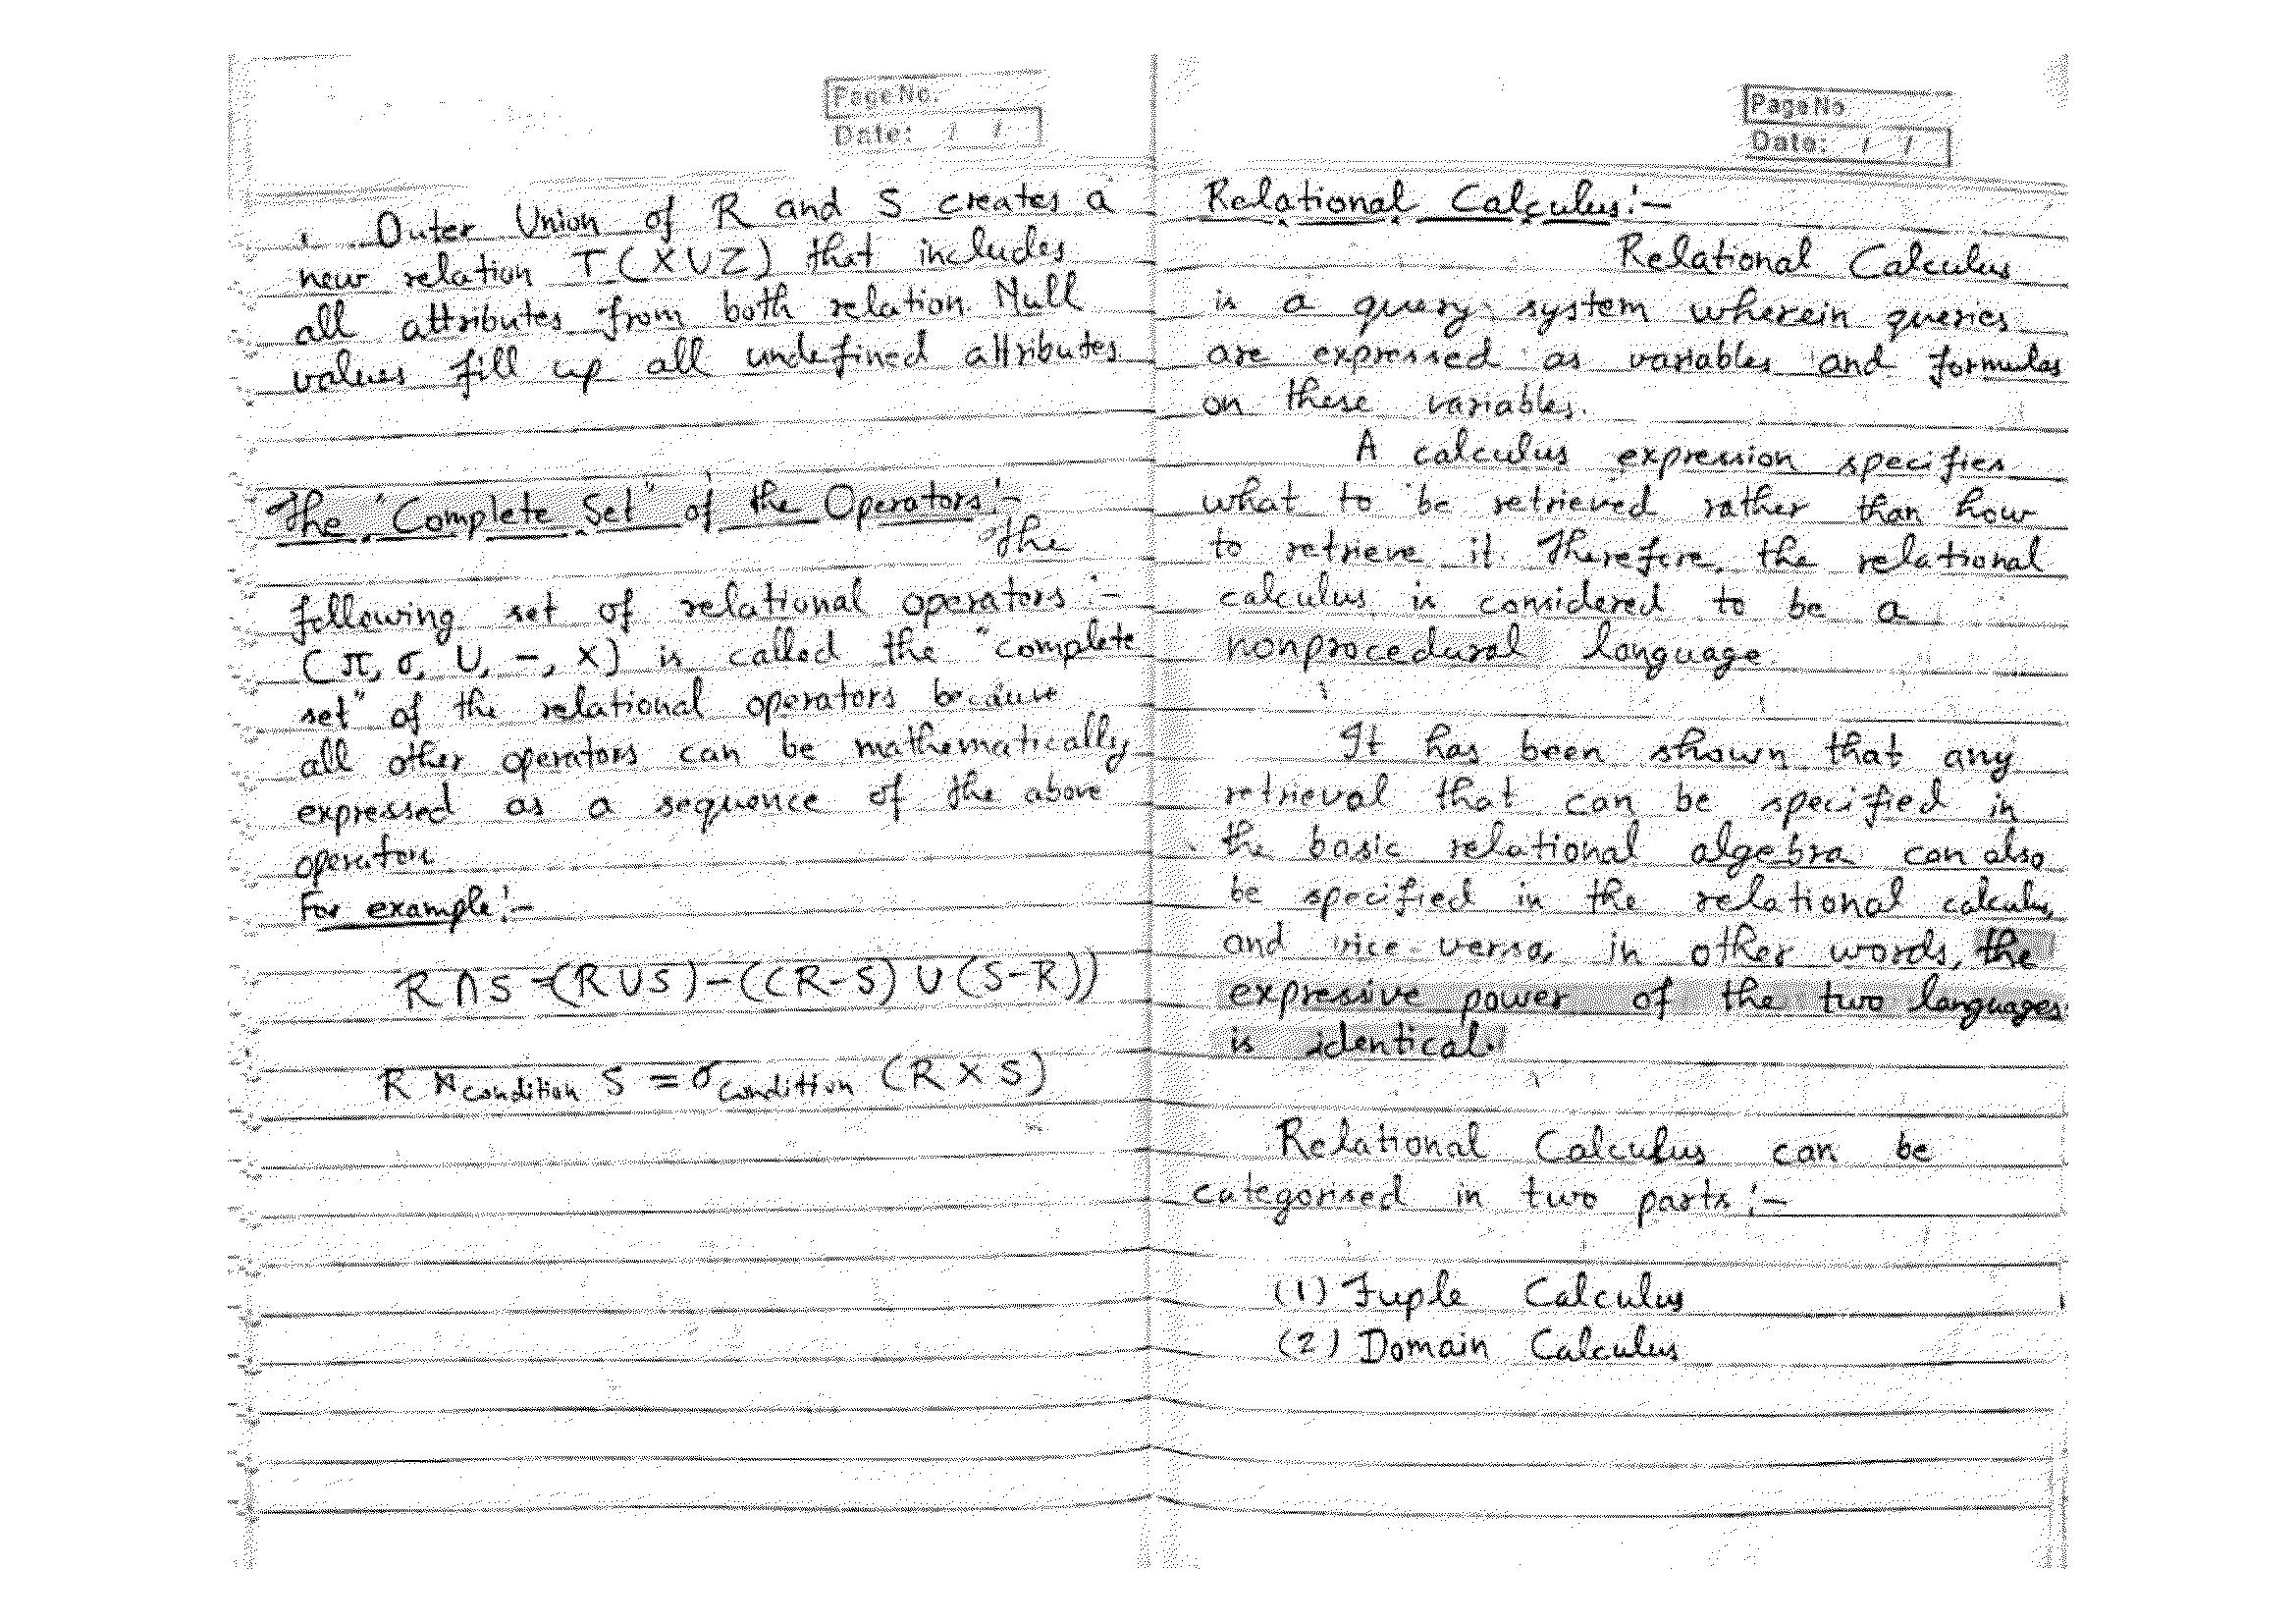 Page No.
Date: / /
Outer Union of R and S creates a
new relation T(X∪Z) that includes
all attributes from both relation. Null
values fill up all undefined attributes
The "Complete Set" of the Operators:-
The
following set of relational operators :-
(π, σ, ∪, -, ×) is called the "complete
set" of the relational operators because
all other operators can be mathematically
expressed as a sequence of the above
operators
For example:-
R ∩ S = (R ∪ S) - ((R-S) ∪ (S-R))
R ⋈condition S = σcondition (R × S)
Page No
Date: / /
Relational Calculus:-
Relational Calculus
is a query system wherein queries
are expressed as variables and formulas
on these variables.
A calculus expression specifies
what to be retrieved rather than how
to retrieve it. Therefore, the relational
calculus is considered to be a
nonprocedural language.
It has been shown that any
retrieval that can be specified in
the basic relational algebra can also
be specified in the relational calculus,
and vice-versa, in other words, the
expressive power of the two languages
is identical.
Relational Calculus can be
categorised in two parts:-
(1) Tuple Calculus
(2) Domain Calculus